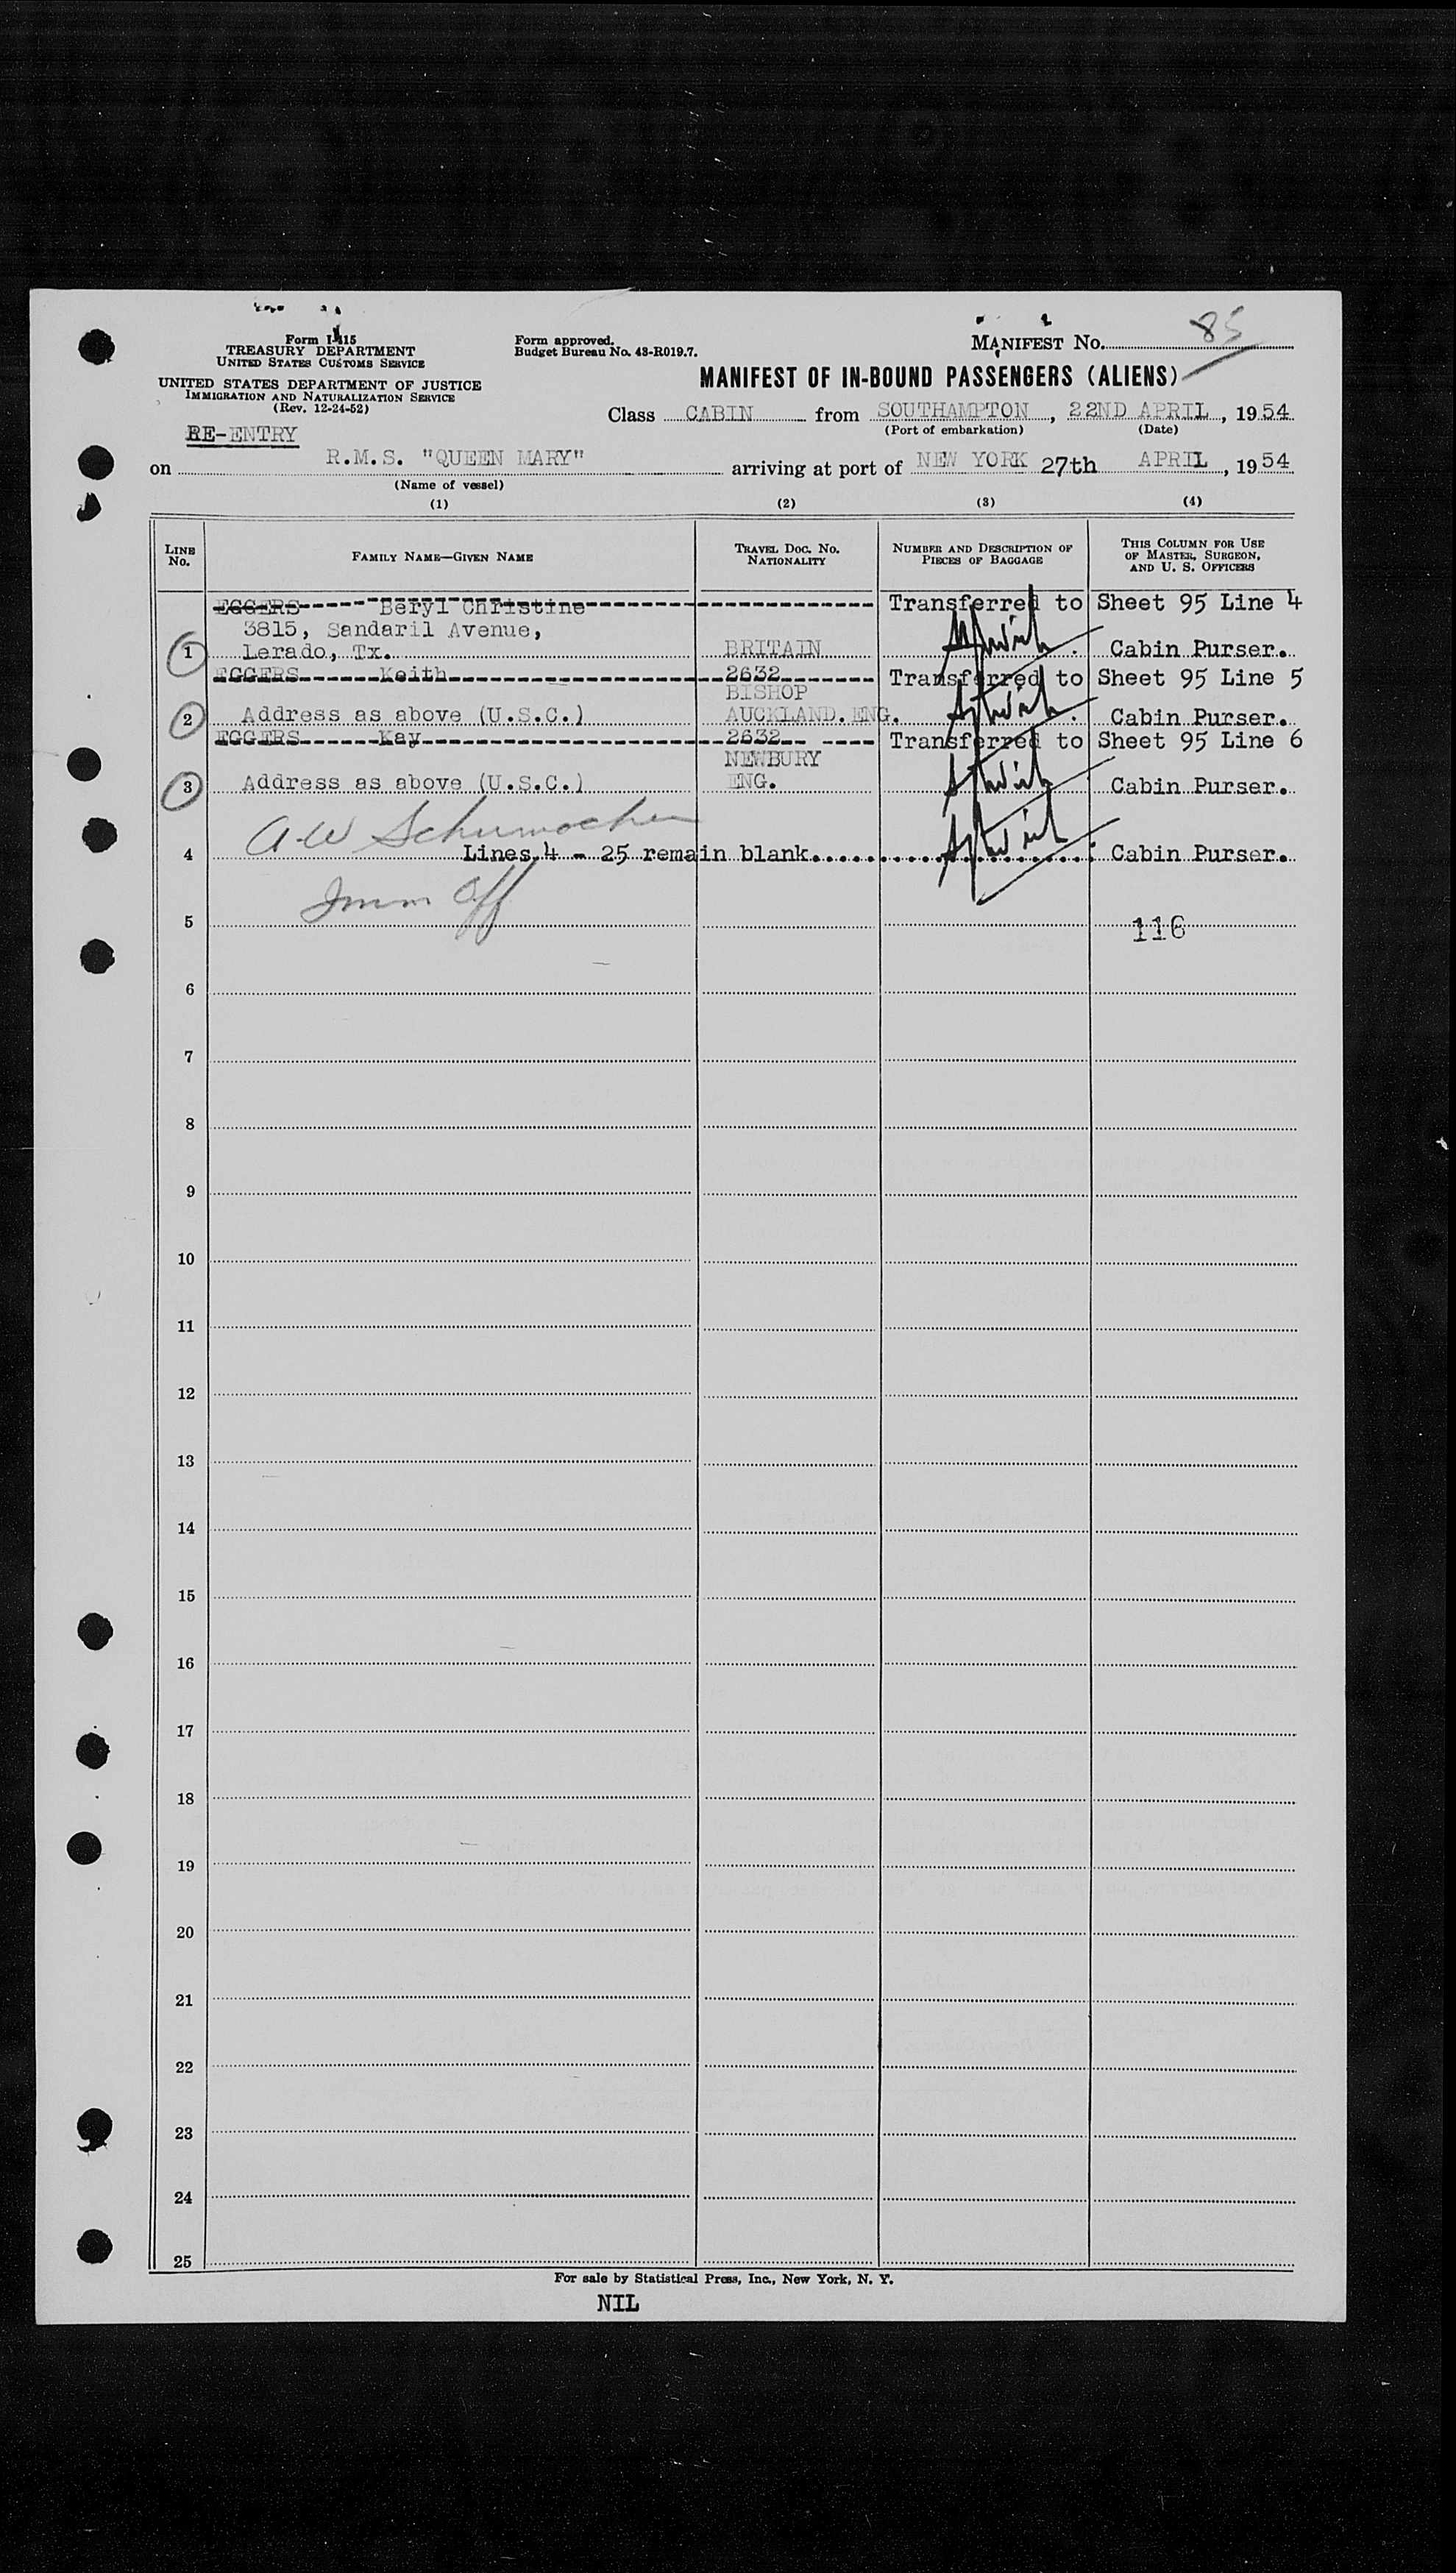 Form I-415
TREASURY DEPARTMENT
UNITED STATES CUSTOMS SERVICE
UNITED STATES DEPARTMENT OF JUSTICE
IMMIGRATION AND NATURALIZATION SERVICE
(Rev. 12-24-52)
RE-ENTRY
Form approved.
Budget Bureau No. 43-R019.7.
MANIFEST No. 85
MANIFEST OF IN-BOUND PASSENGERS (ALIENS)
Class CABIN from SOUTHAMPTON, 22ND APRIL, 1954
(Port of embarkation) (Date)
on R.M.S. "QUEEN MARY" arriving at port of NEW YORK 27th APRIL, 1954
(Name of vessel)
(1) (2) (3) (4)
LINE No. FAMILY NAME—GIVEN NAME TRAVEL DOC. NO. NATIONALITY NUMBER AND DESCRIPTION OF PIECES OF BAGGAGE THIS COLUMN FOR USE OF MASTER, SURGEON, AND U. S. OFFICERS
EGGERS Beryl Christine Transferred to Sheet 95 Line 4
3815, Sandaril Avenue,
1 Lerado, Tx. BRITAIN Cabin Purser.
EGGERS Keith 2632 Transferred to Sheet 95 Line 5
BISHOP
2 Address as above (U.S.C.) AUCKLAND. ENG. Cabin Purser.
EGGERS Kay 2632 Transferred to Sheet 95 Line 6
NEWBURY
3 Address as above (U.S.C.) ENG. Cabin Purser.
A-W Schumacher
4 Lines 4 - 25 remain blank. Cabin Purser.
Imm Off
5 116
6
7
8
9
10
11
12
13
14
15
16
17
18
19
20
21
22
23
24
25
For sale by Statistical Press, Inc., New York, N. Y.
NIL